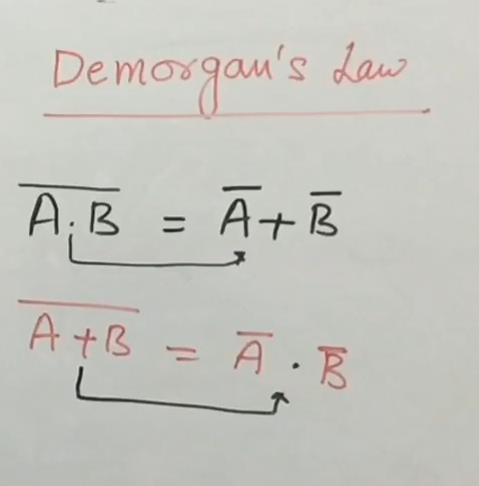 Demorgan's Law
\overline{A.B} = \overline{A} + \overline{B}
\overline{A+B} = \overline{A} . \overline{B}